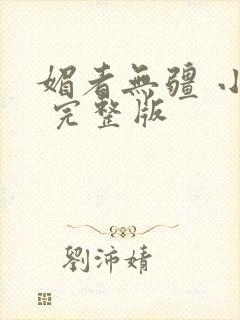 媚者無疆 小
完整版
劉沛婧